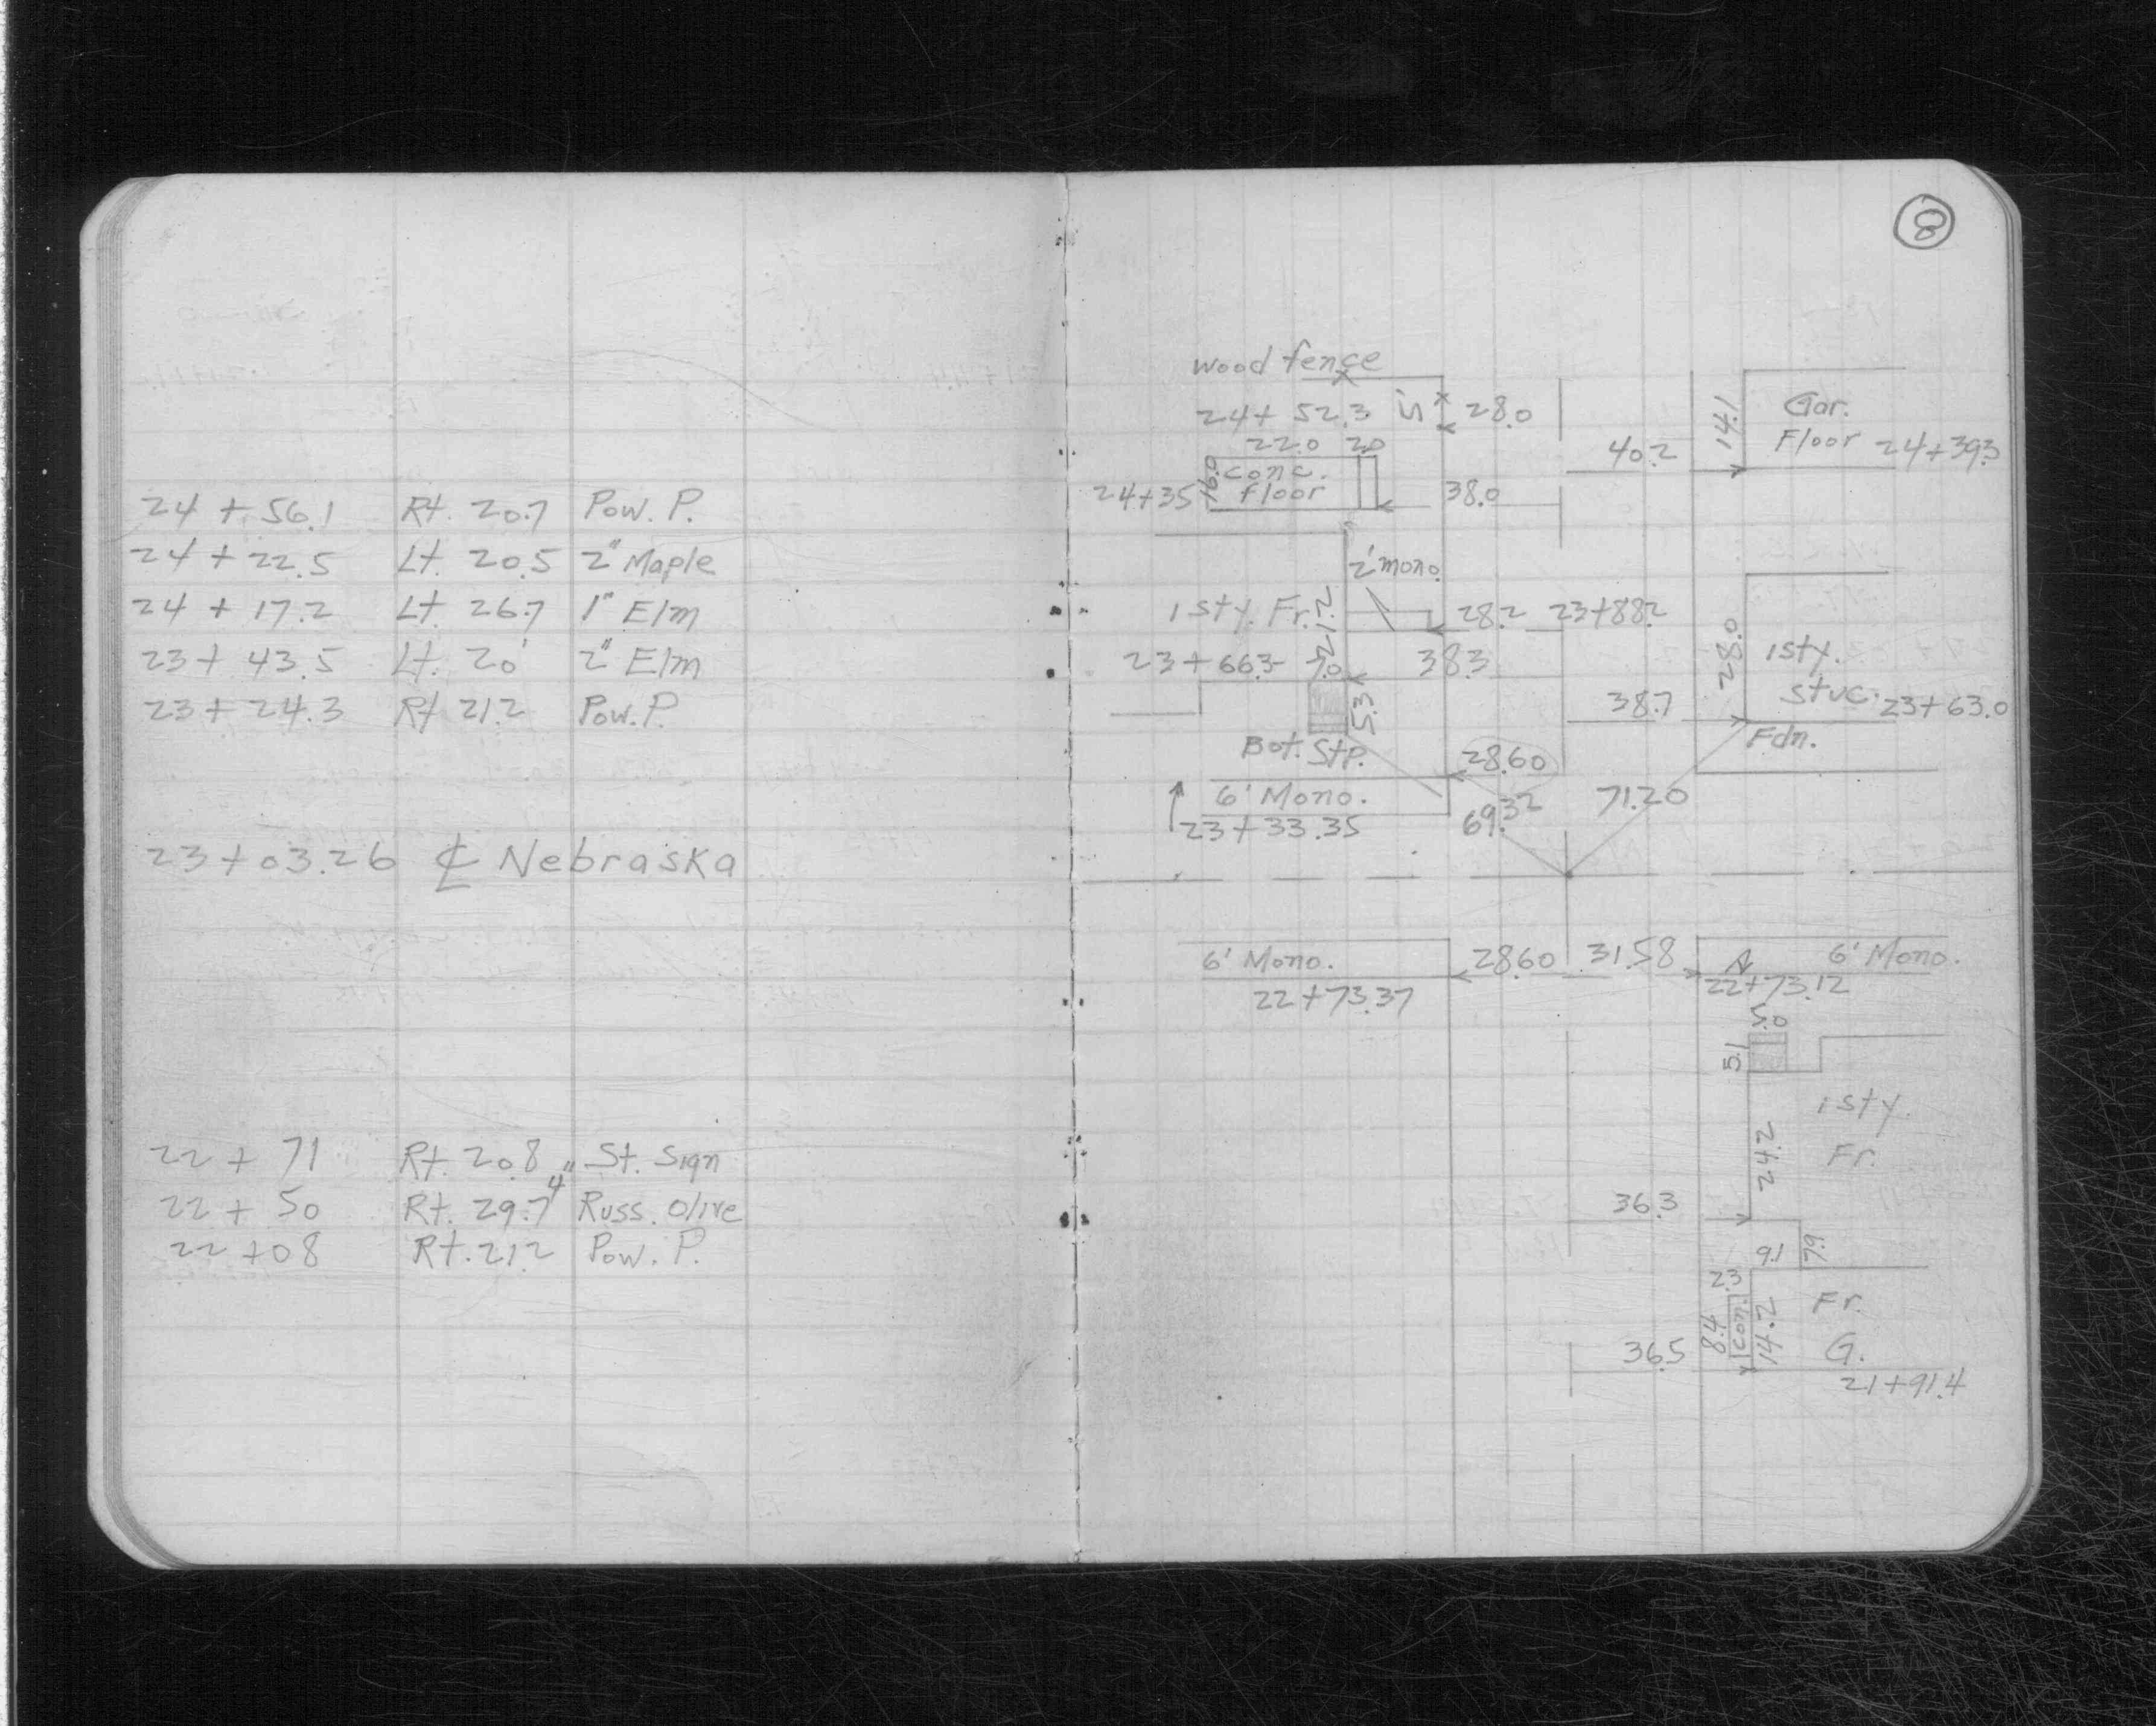 24 + 56.1 Rt. 20.7 Pow. P.
24 + 22.5 Lt. 20.5 2" Maple
24 + 17.2 Lt. 26.7 1" Elm
23 + 43.5 Lt. 20' 2" Elm
23 + 24.3 Rt 21.2 Pow. P.
23+03.26 ℄ Nebraska
22 + 71 Rt. 20.8 St. Sign
22 + 50 Rt. 29.7 4" Russ. Olive
22 +08 Rt. 21.2 Pow. P.
8
wood fence
24+ 52.3 5' 28.0
14.1 Gar.
Floor 24+39.3
40.2
22.0 2.0
16.0 conc.
floor
24+35 38.0
2' mono.
1 sty. Fr. 21.2 28.2 23+88.2
23+66.3 7.0 38.3
28.0 1 sty.
stuc. 23+63.0
38.7
Fdn.
5.3
Bot. Stp. 28.60
6' Mono.
23+33.35
69.32 71.20
6' Mono. 28.60 31.58 6' Mono.
22+73.37 22+73.12
5.0
5.1
1 sty.
Fr.
24.2
36.3
9.1 7.9
2.3
8.4 con. 14.2 Fr.
G.
36.5
21+91.4